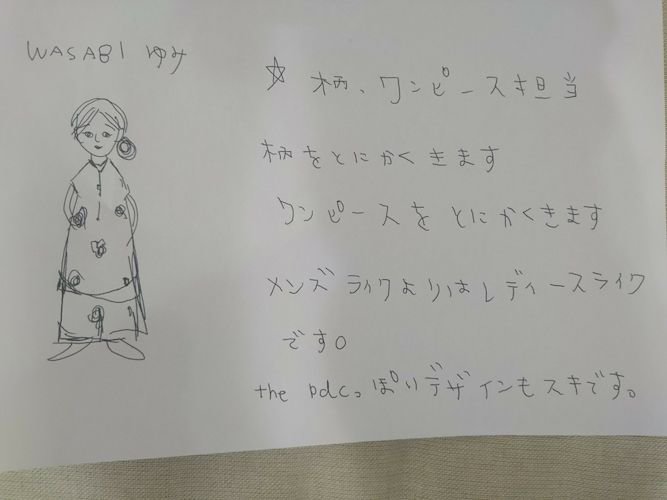 WASABI ゆみ
☆ 柄、ワンピース担当
柄をとにかくきます
ワンピースをとにかくきます
メンズライクよりはレディースライク
です。
the pdc。ぽいデザインもスキです。